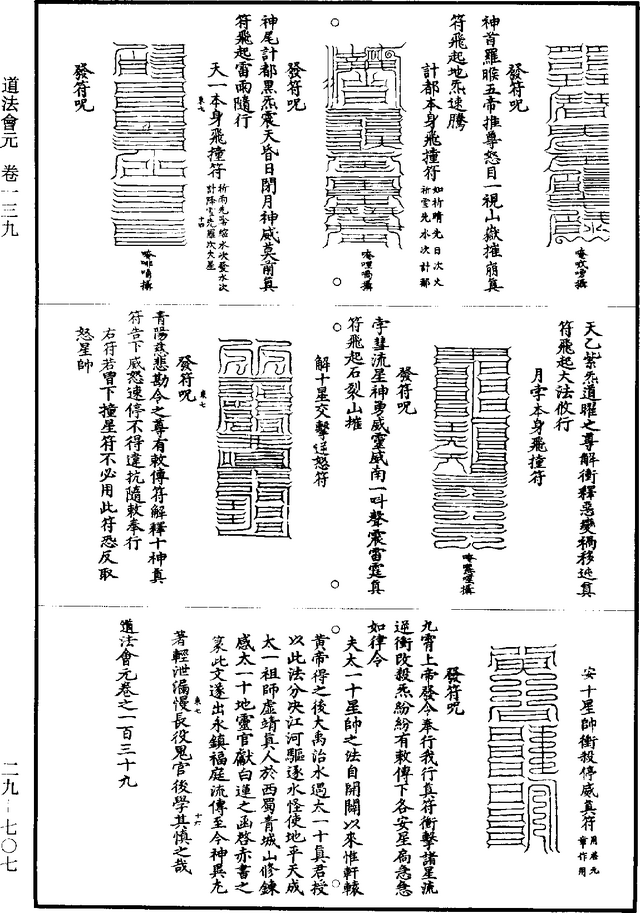 唵吰唠攝
發符呪
神首羅睺五帝推尊怒目一視山嶽摧崩真
符飛起地炁速騰
計都本身飛撞符
如祈晴先日次火
祈雲先水次計都
發符呪
神尾計都黑炁震天昏日閉月神威莫前真
符飛起雷雨隨行
天一本身飛撞符
發符呪
天乙紫炁道曜之尊解衝釋惡變禍移迍真
符飛起大法攸行
月孛本身飛撞符
發符呪
孛彗流星神勇威靈威南一叫聲震雷霆真
符飛起石裂山摧
解十星交擊逆怒符
發符呪
青陽慈悲勘令之尊有敕傳符解釋十神真
符告下威怒速停不得違抗隨敕奉行
右符若冒下撞星符不必用此符恐反取
怒星帥
安十星帥衝殺停威真符
發符呪
九霄上帝發令奉行我行真符衝擊諸星流
逆衝改殺炁紛紛有敕傳下各安星扃急急
如律令
夫太一十星帥之法自開闢以來惟軒轅
黃帝得之後大禹治水遇太一十真君授
以此法分決江河驅逐水怪使地平天成
太一祖師虛靖真人於西蜀青城山修鍊
感太一十地靈官獻白蓮之函啓赤書之
篆此文遂出永鎮福庭流傳至今神異尤
著輕泄漏慢長役鬼官後學其慎之哉
道法會元卷之一百三十九
道法會元 卷一三九
二九—七〇七